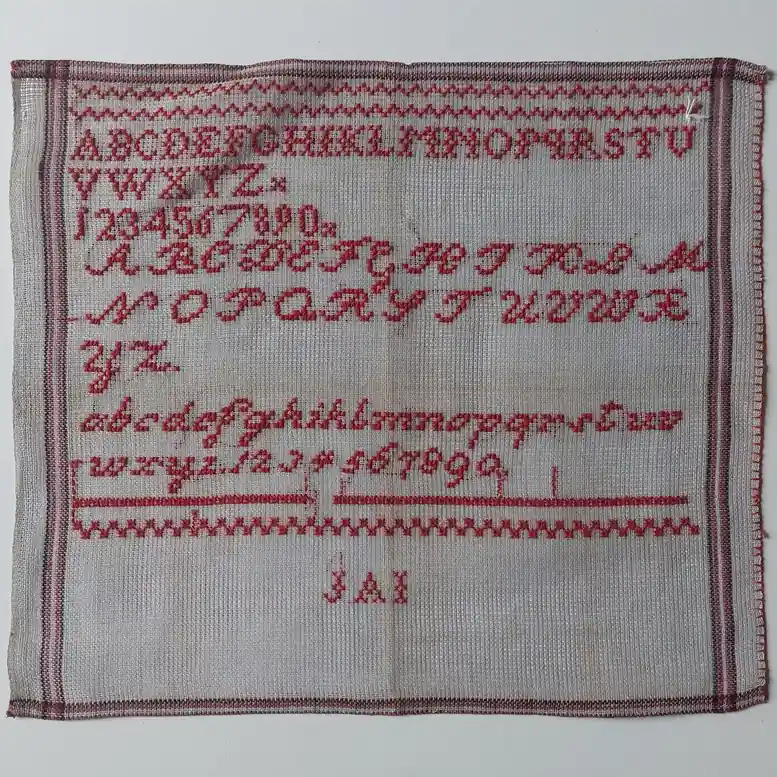 ABCDEFGHIKLMNOPQRSTU
VWXYZ
1234567890
ABCDEFGHIKLM
NOPQRSTUVWX
YZ
abcdefghiklmnopqrstuv
wxyz1234567890
JAI